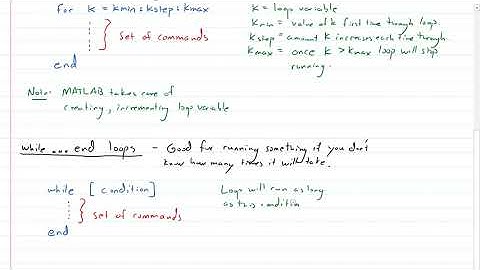 for k = kmin : kstep : kmax
set of commands
end
k = loop variable
kmin = value of k first time through loop.
kstep = amount k increases each time through.
kmax = once k > kmax loop will stop
running.
Note: MATLAB takes care of
creating, incrementing loop variable
while ... end loops - Good for running something if you don't
know how many times it will take.
while [condition]
set of commands
end
Loop will run as long
as this condition